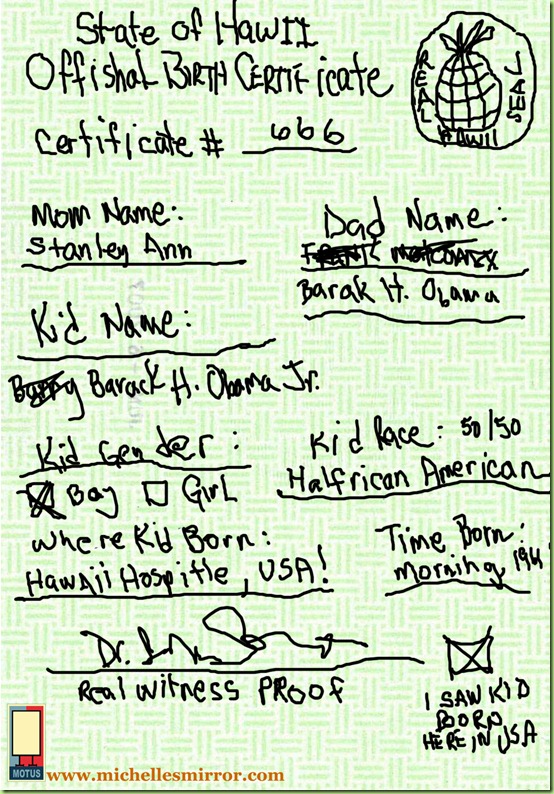 State of HawII
Offishal BIRTH CERTIFicate
REAL SEAL
HAWII
Certificate # 666
Mom Name:
Stanley Ann
Dad Name:
Barak H. Obama
Kid Name:
Barry Barack H. Obama Jr.
Kid Gender:
Boy Girl
Kid Race: 50/50
Halfrican American
Where Kid Born:
Hawaii Hospitle, USA!
Time Born:
morning
Dr.
Real Witness PROOF
I SAW KID
BORN
HERE IN USA
MOTUS www.michellesmirror.com